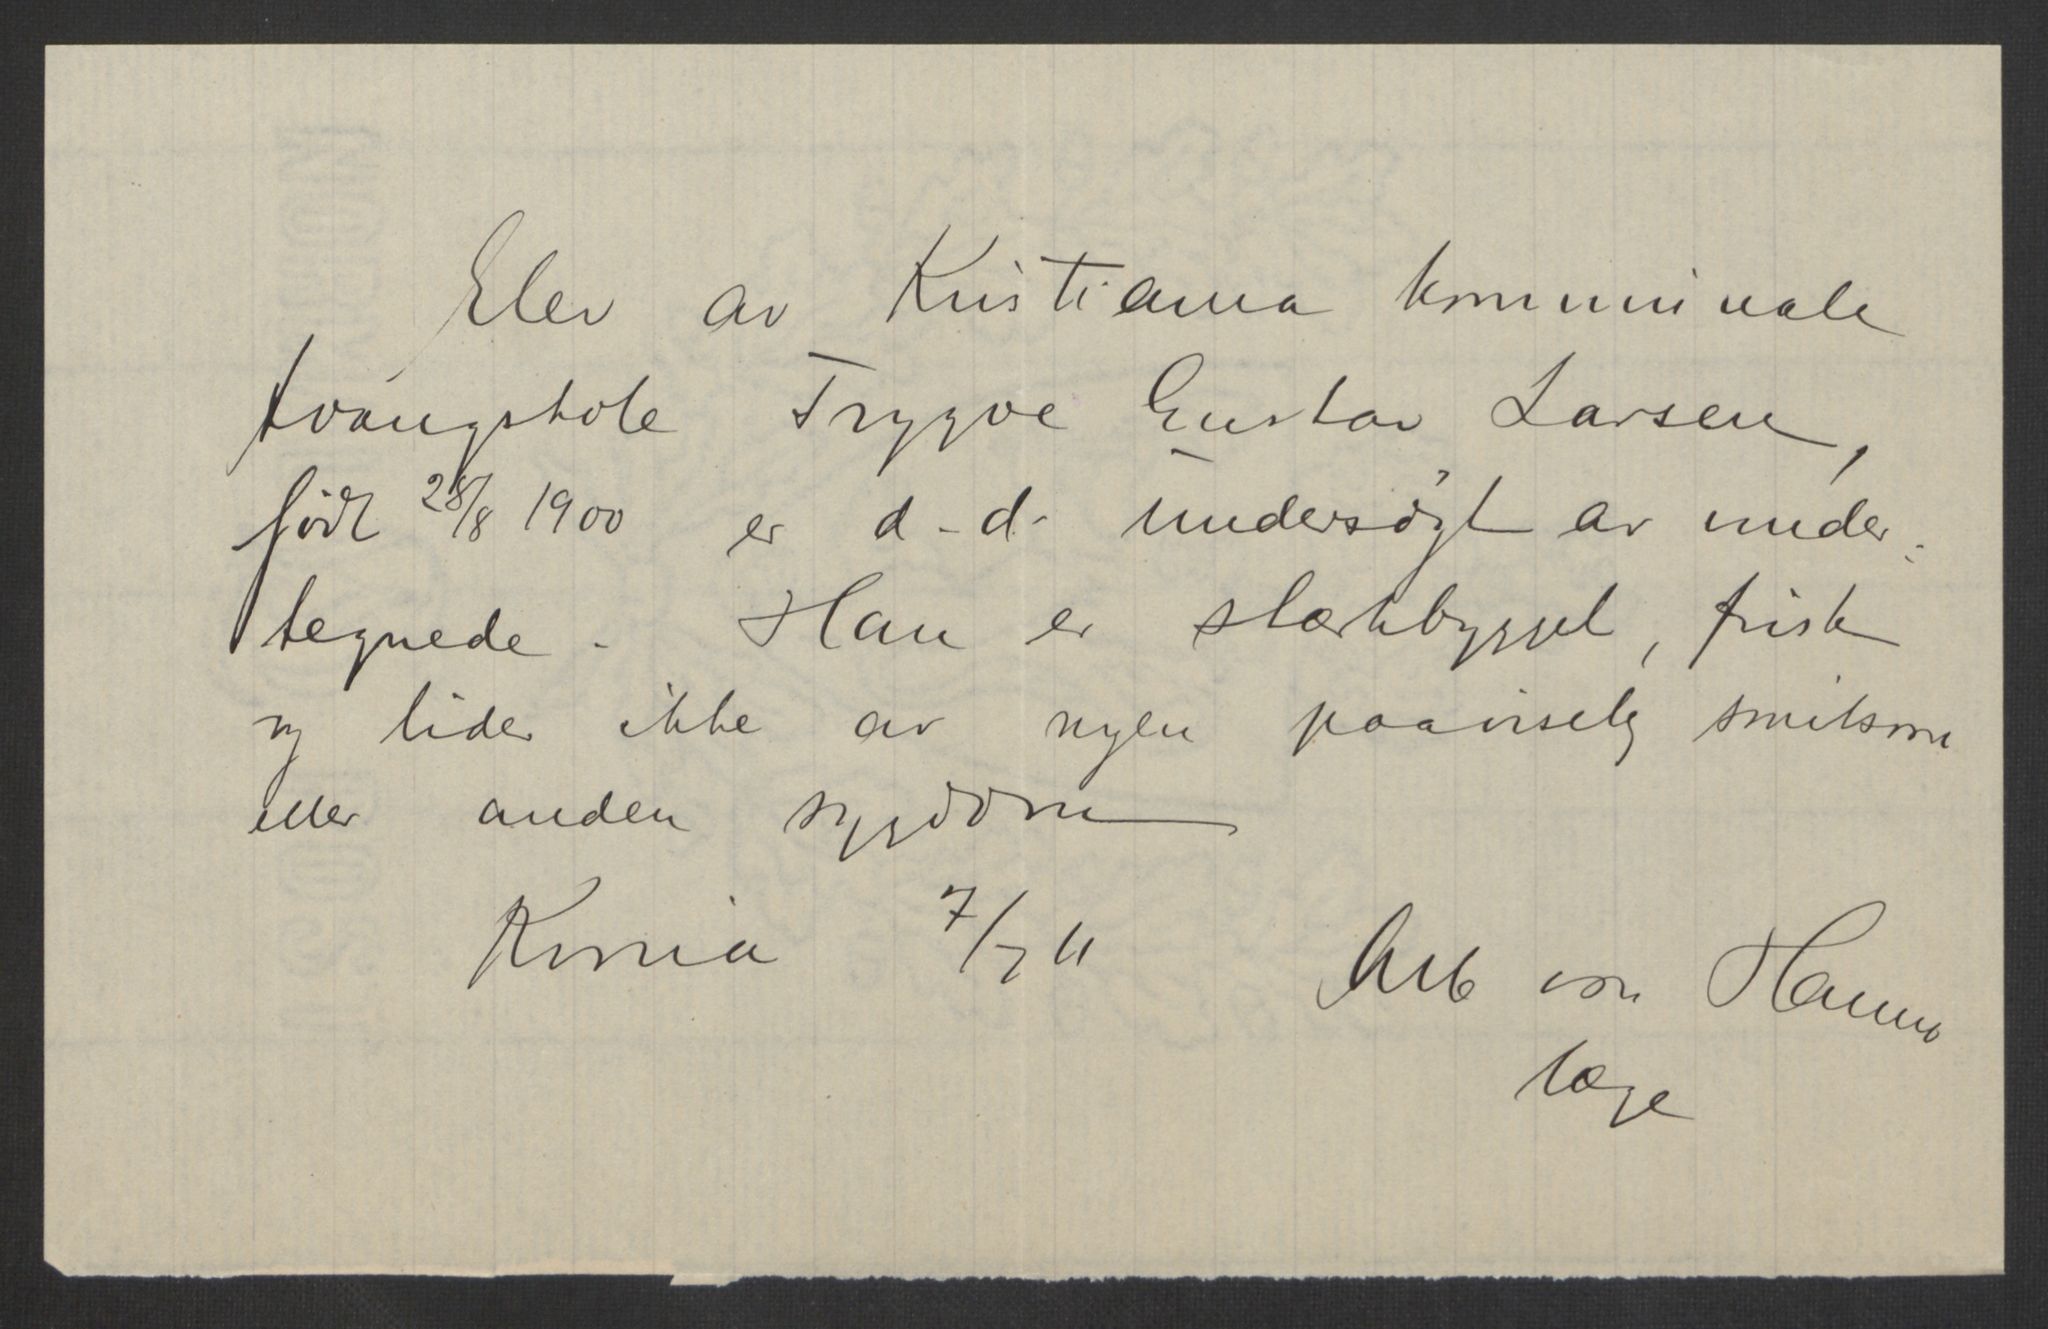 Elev av Kristiania kommunale
tvangskole Trygve Gustav Larsen,
født 28/8 1900 er d-d- undersøgt av under-
tegnede. Han er stærkbygget, frisk
og lider ikke av nogen paaviselig smitsom
eller anden sygdom
Krania 7/7 11
von Hanno
læge